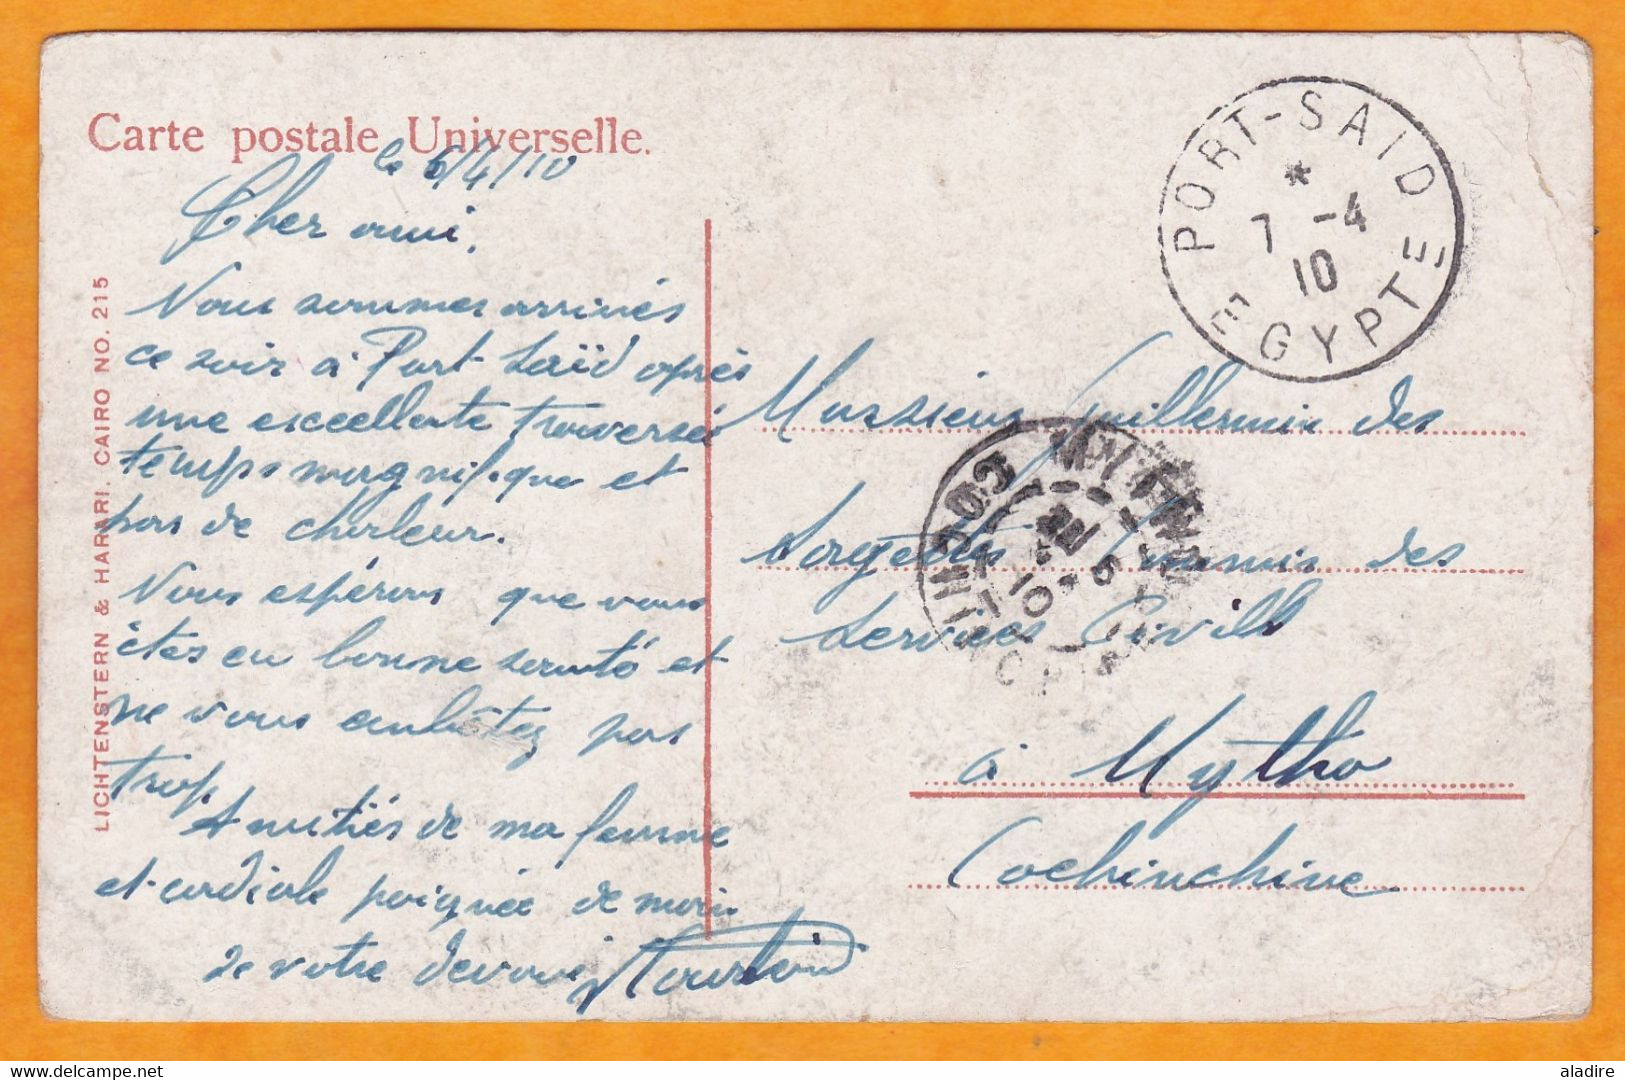 Carte postale Universelle.
le 6/4/10
Cher ami,
Nous sommes arrivés
ce soir à Port Saïd après
une excellente traversée
temps magnifique et
pas de chaleur.
Nous espérons que vous
êtes en bonne santé et
ne vous embêtez pas
trop.
Amitiés de ma femme
et cordiale poignée de main
de votre dévoué
LICHTENSTERN & HARARI. CAIRO NO. 215
PORT-SAID
*
7 -4
10
EGYPTE
Monsieur Guillermin des
Commis des
Services Civils
à Mytho
Cochinchine
COCHINCHINE
aladire